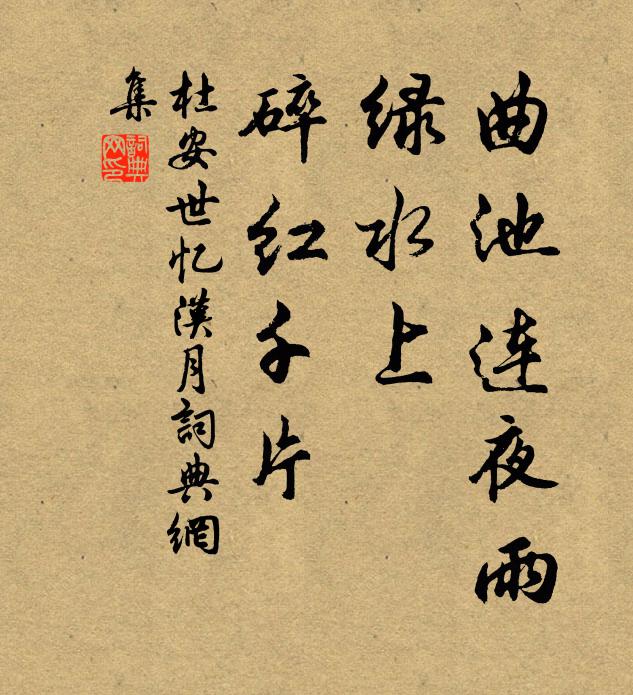 曲池连夜雨
绿水上
碎红千片
杜安世忆漢月詞典網
集
詞典
网印